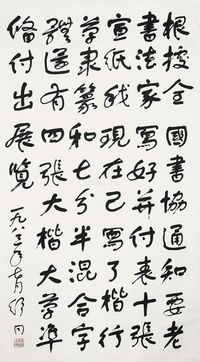 根按全國書協通知要老
書法家寫好并付表十張
宣紙我現在已寫了楷行
草隸篆和七分半混合字
體還有四張大楷大草準
俻付出展覽
一九八三年月舒同